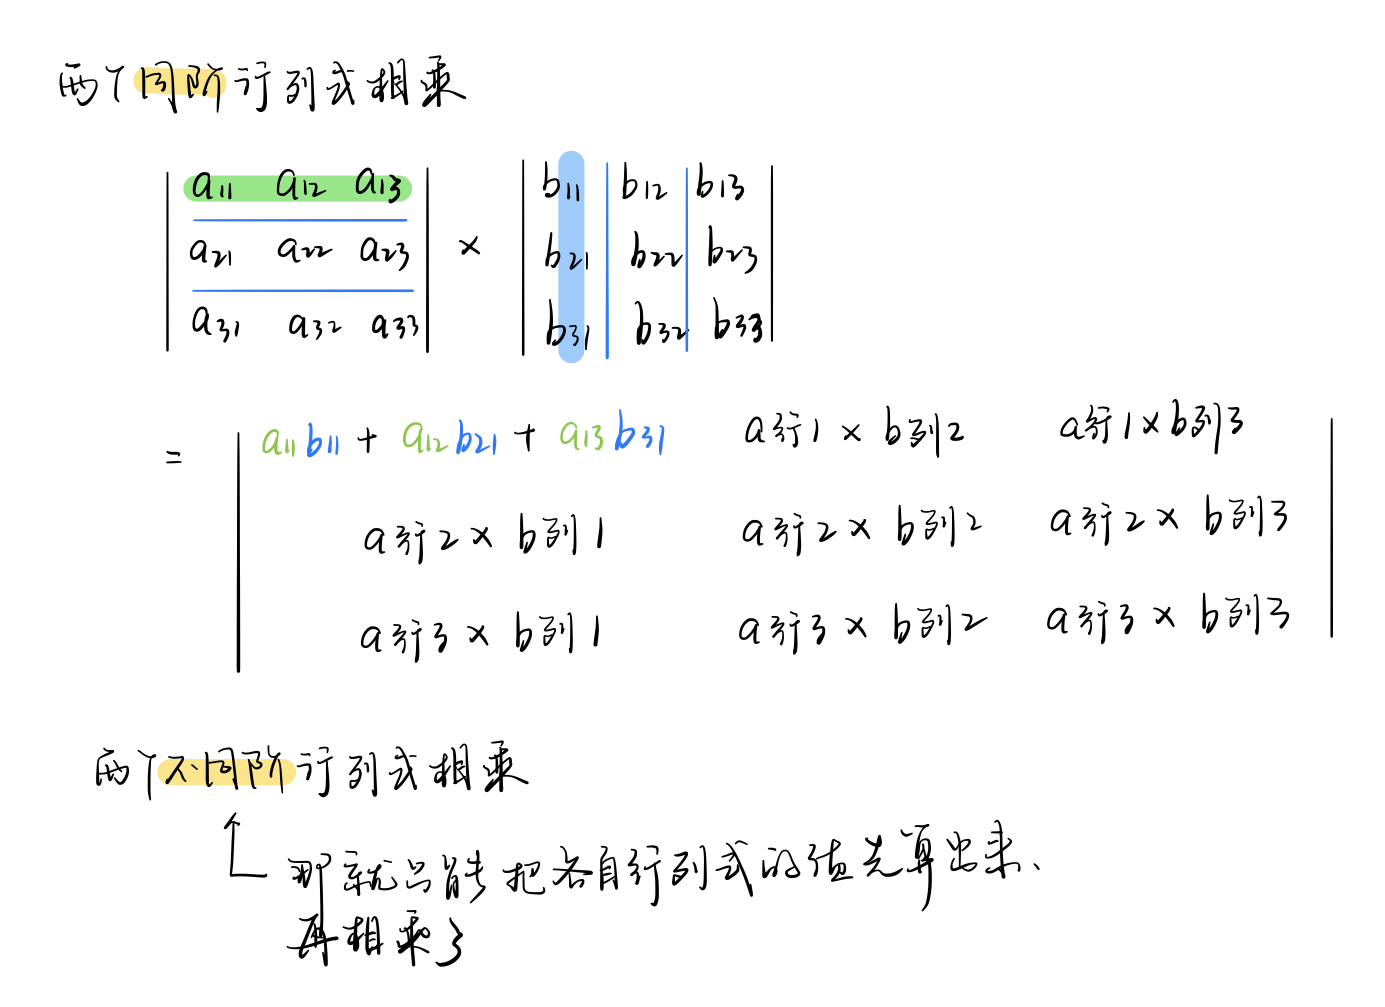 两个同阶行列式相乘
| a11 a12 a13 | × | b11 b12 b13 |
| a21 a22 a23 | | b21 b22 b23 |
| a31 a32 a33 | | b31 b32 b33 |
= | a11b11 + a12b21 + a13b31 a行1 × b列2 a行1×b列3 |
| a行2 × b列1 a行2 × b列2 a行2 × b列3 |
| a行3 × b列1 a行3 × b列2 a行3 × b列3 |
两个不同阶行列式相乘
那就只能把各自行列式的值先算出来、
再相乘了